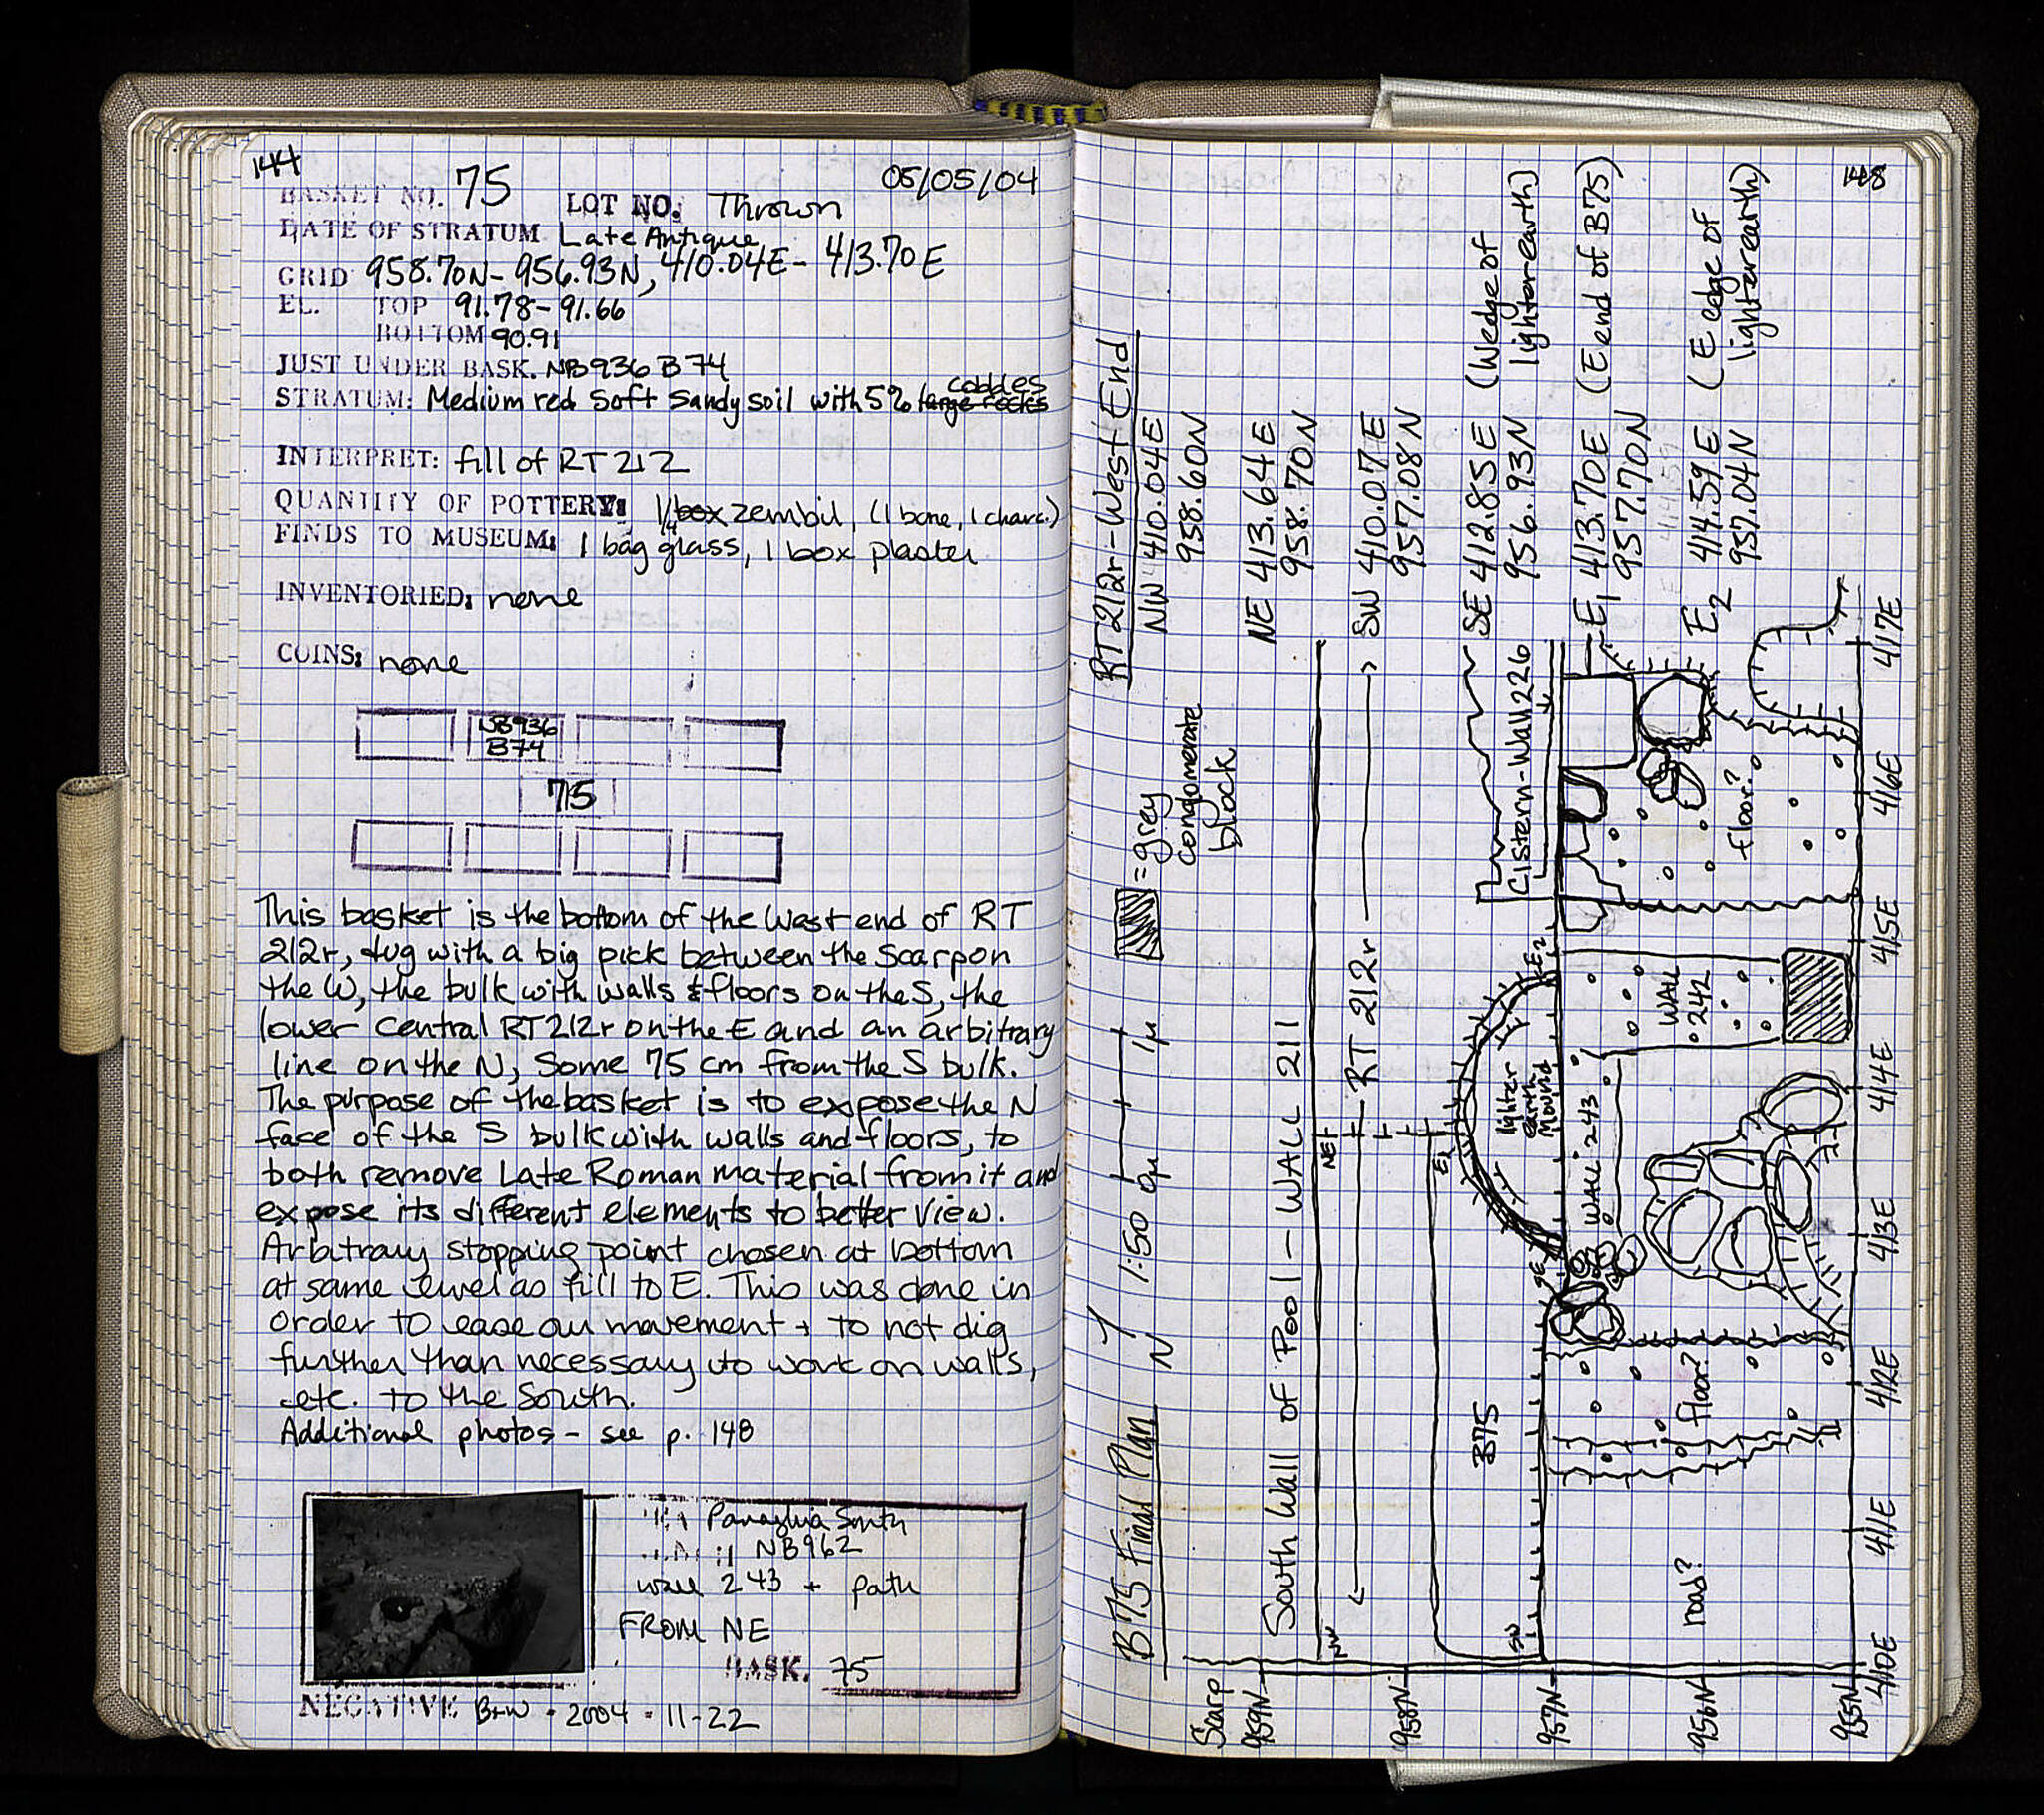 144
05/05/04
BASKET NO. 75 LOT NO. Thrown
DATE OF STRATUM Late Antique
GRID 958.70N - 956.93N, 410.04E - 413.70E
EL. TOP 91.78 - 91.66
BOTTOM 90.91
JUST UNDER BASK. NB936 B74
STRATUM: Medium red soft sandy soil with 5% large rocks cobbles
INTERPRET: fill of RT 212
QUANTITY OF POTTERY: 1/4 box zembil, (1 bone, 1 charc.)
FINDS TO MUSEUM: 1 bag glass, 1 box plaster
INVENTORIED: none
COINS: none
NB936
B74
75
This basket is the bottom of the West end of RT
212r, dug with a big pick between the Scarp on
the W, the bulk with walls & floors on the S, the
lower central RT212r on the E and an arbitrary
line on the N, some 75 cm from the S bulk.
The purpose of the basket is to expose the N
face of the S bulk with walls and floors, to
both remove Late Roman material from it and
expose its different elements to better view.
Arbitrary stopping point chosen at bottom
at same level as fill to E. This was done in
order to ease our movement + to not dig
further than necessary to work on walls,
etc. to the South.
Additional photos - see p. 148
Panayhia South
NB962
wall 243 + path
FROM NE
BASK. 75
NEGATIVE B+W - 2004 - 11-22
148
B75 Final Plan
N
1:50 0M 1M
= grey
conglomerate
block
RT 212r - West End
NW 410.04E
958.60N
NE 413.64E
958.70N
SW 410.07E
957.08N
SE 412.85E (W edge of
956.93N lighter earth)
E1 413.70E (E end of B75)
957.70N
E2 414.59E (E edge of
957.04N lighter earth)
South Wall of Pool - WALL 211
RT 212r
Cistern - Wall 226
NW
NE
E1
E2
SE
SW
B75
lighter
earth
Mound
WALL 243
WALL
242
floor?
floor?
road?
Scarp
959N
958N
957N
956N
955N
410E
411E
412E
413E
414E
415E
416E
417E